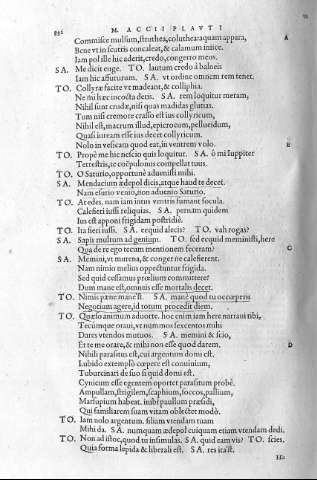 892 M. ACCII PLAVTI
Commisce mulsum, struthea, coluthea appara, A
Bene vt in scutris concaleat, & calamum inijce.
Iam pol ille hic aderit, credo, congerro meus.
SA. Me dicit euge. TO. lautum credo à balneis
Iam hic affuturum. SA. vt ordine omnem rem tenet.
TO. Collyræ facite vt madeant, & colliphia.
Ne mihi incocta detis. SA. rem loquitur meram,
Nihil sunt crudæ, nisi quas madidas glutias.
Tum nisi cremore crasso est ius collyricum,
Nihil est, macrum illud, epicrocum, pelluridum,
Quasi iureum esse ius decet collyricum.
Nolo in vesicam quod eat, in ventrem volo. B
TO. Propè me hic nescio quis loquitur. SA. ô mi Iuppiter
Terrestris, te coëpulonus compellat tuus.
TO. O Saturio, opportunè aduenisti mihi.
SA. Mendacium ædepol dicis, atque haud te decet.
Nam esurio venio, non aduenio Saturio.
TO. At edes. nam iam intus ventris fumant focula.
Calefieri iussi reliquias. SA. pernam quidem
Ius est apponi frigidam postridie.
TO. Ita fieri iussi. SA. ecquid alecis? TO. vah rogas?
SA. Sapis multum ad genium. TO. sed ecquid meministi, here
Qua de re ego tecum mentionem feceram? C
SA. Memini, vt murena, & conger ne calefierent.
Nam nimio melius oppectuntur frigida.
Sed quid cessamus prælium commitere?
Dum mane est, omnis esse mortales decet.
TO. Nimis pæne mane'st. SA. mane quod tu occœperis
Negotium agere, id totum procedit diem.
TO. Quæso animum aduorte. hoc enim iam here narraui tibi,
Tecumque oraui, vt nummos sexcentos mihi
Dares vtendos mutuos. SA. memini & scio,
Et te me orare, & mihi non esse quod darem. D
Nihili parasitus est, cui argentum domi est.
Lubido extemplò cœpere est conuiuium,
Tuburcinari de suo si quid domi est.
Cynicum esse egentem oportet parasitum probè.
Ampullam, strigilem, scaphium, soccos, pallium,
Marsupium habeat. inibi paullum præsidi,
Qui familiarem suam vitam oblectet modò.
TO. Iam nolo argentum. filiam vtendam tuam
Mihi da. SA. numquam ædepol cuiquam etiam vtendam dedi.
TO. Non ad istoc, quod tu insimulas. SA. quid eam vis? TO. scies.
Quia forma lepida & liberali est. SA. res ita'st.